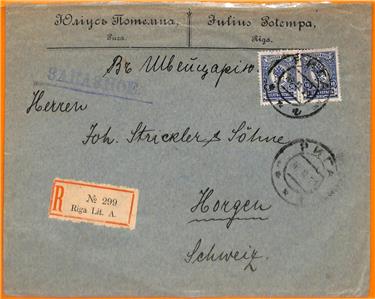 Юліусъ Потемпа,
Рига.
Julius Potempa,
Riga.
Въ Швейцарію.
ЗАКАЗНОЕ.
Herren
Joh. Strickler & Söhne
РИГА
R
№ 299
Riga Lit. A.
Horgen
Schweiz.